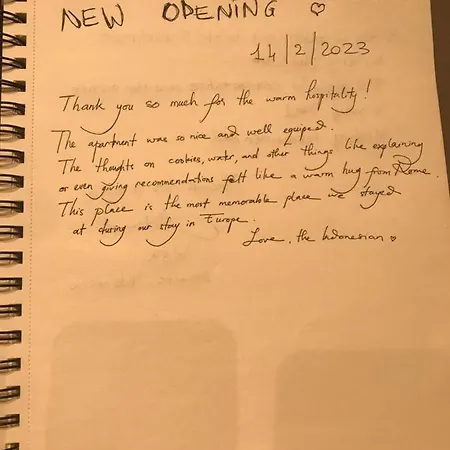 NEW OPENING ♡
14/2/2023
Thank you so much for the warm hospitality!
The apartment was so nice and well equiped.
The thoughts on cookies, water, and other things like explaining
or even giving recommendations felt like a warm hug from Rome.
This place is the most memorable place we stayed
at during our stay in Europe.
Love, the Indonesian ♡